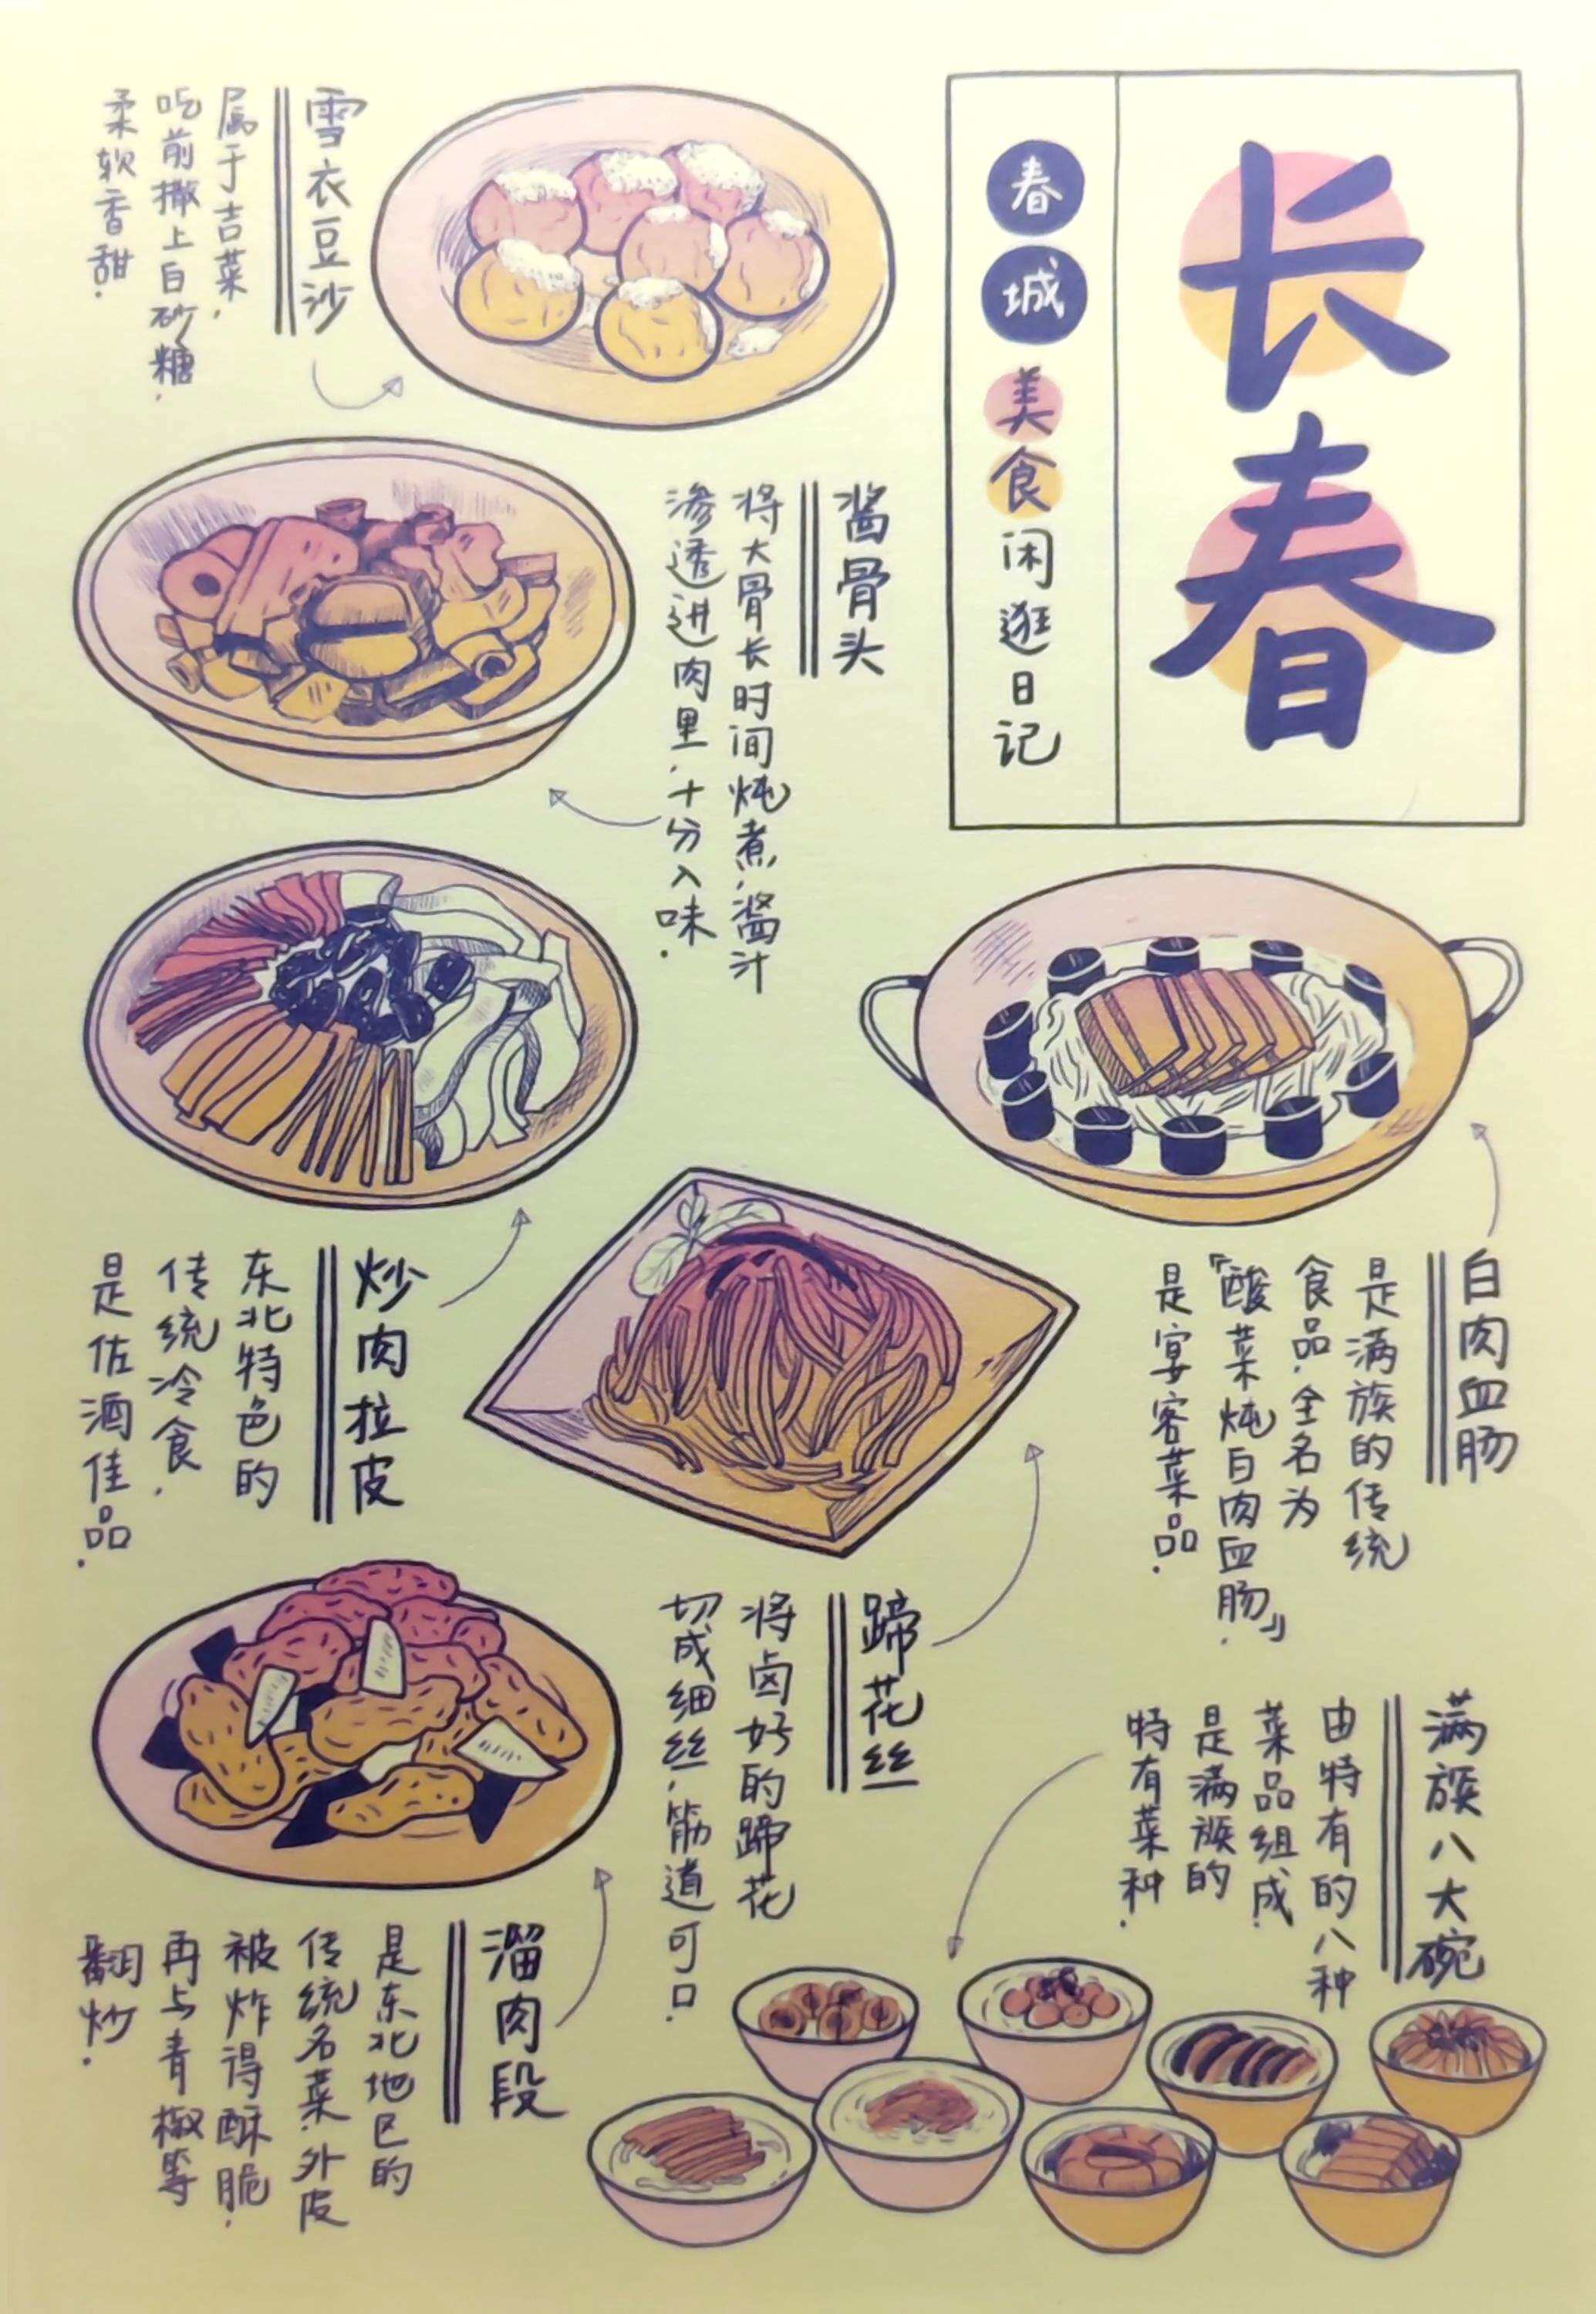 长春
春城美食闲逛日记
雪衣豆沙
属于吉菜,
吃前撒上白砂糖,
柔软香甜.
酱骨头
将大骨长时间炖煮,酱汁
渗透进肉里,十分入味.
白肉血肠
是满族的传统
食品,全名为
「酸菜炖白肉血肠」,
是宴客菜品.
炒肉拉皮
东北特色的
传统冷食,
是佐酒佳品.
蹄花丝
将卤好的蹄花
切成细丝,筋道可口.
满族八大碗
由特有的八种
菜品组成,
是满族的
特有菜种.
溜肉段
是东北地区的
传统名菜,外皮
被炸得酥脆,
再与青椒等
翻炒.